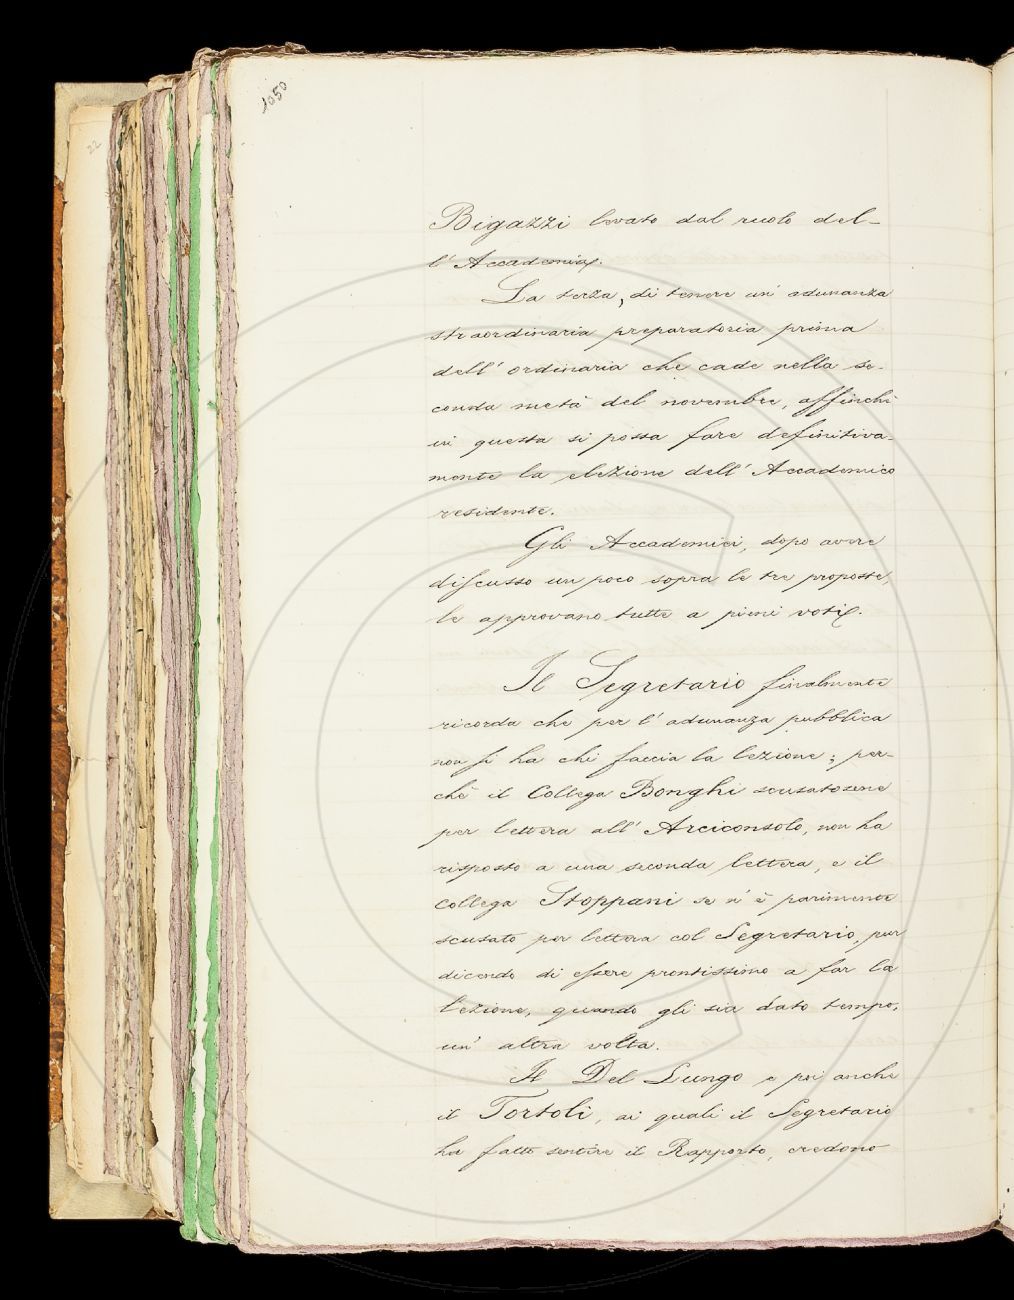 1050
22
Bigazzi levato dal ruolo del-
l'Accademia.
La terza, di tenere un' adunanza
straordinaria preparatoria prima
dell' ordinaria che cade nella se-
conda metà del novembre, affinchè
in questa si possa fare definitiva-
mente la elezione dell' Accademico
residente.
Gli Accademici, dopo avere
discusso un poco sopra le tre proposte,
le approvano tutte a pieni voti.
Il Segretario finalmente
ricorda che per l' adunanza pubblica
non si ha chi faccia la lezione; per-
chè il Collega Bonghi scusatosene
per lettera all' Arciconsolo, non ha
risposto a una seconda lettera, e il
Collega Stoppani se n' è parimente
scusato per lettera col Segretario, pur
dicendo di essere prontissimo a far la
lezione, quando gli sia dato tempo,
un' altra volta.
Il Del Lungo e poi anche
il Tortoli, ai quali il Segretario
ha fatto sentire il Rapporto, credono